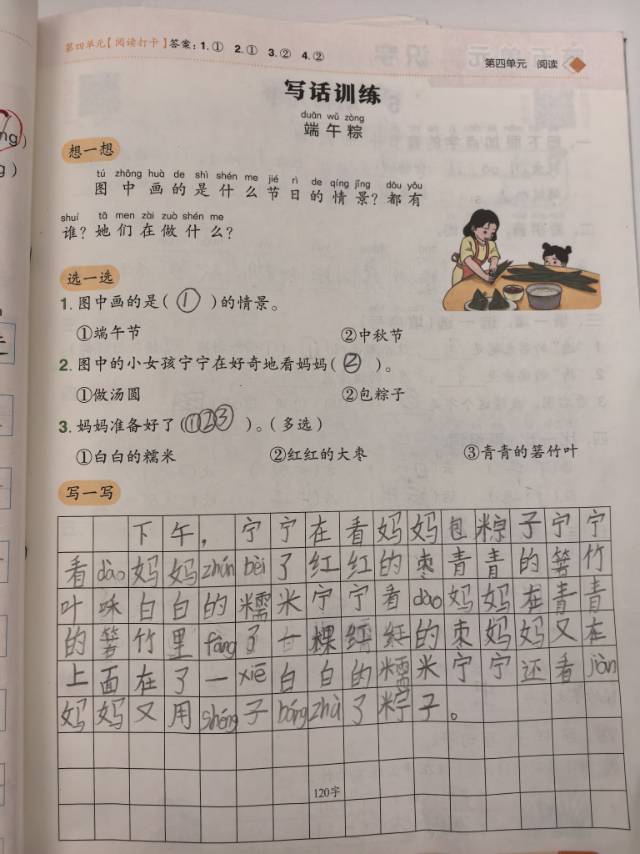 第四单元【阅读打卡】答案：1.① 2.① 3.② 4.②
第四单元 阅读
写话训练
duān wǔ zòng
端午粽
想一想
tú zhōng huà de shì shén me jié rì de qíng jǐng dōu yǒu
图中画的是什么节日的情景？都有
shuí tā men zài zuò shén me
谁？她们在做什么？
选一选
1. 图中画的是( ① )的情景。
①端午节 ②中秋节
2. 图中的小女孩宁宁在好奇地看妈妈( ② )。
①做汤圆 ②包粽子
3. 妈妈准备好了(①②③ )。(多选)
①白白的糯米 ②红红的大枣 ③青青的箬竹叶
写一写
下午，宁宁在看妈妈包粽子宁宁
看dào妈妈zhǔn bèi了红红的枣青青的箬竹
叶 白白的糯米宁宁看dào妈妈在青青
的箬竹里fàng了一棵红红的枣妈妈又在
上面在了一xiē白白的糯米宁宁还看jiàn
妈妈又用shéng子bǎng zhà了粽子。
120字
ng)